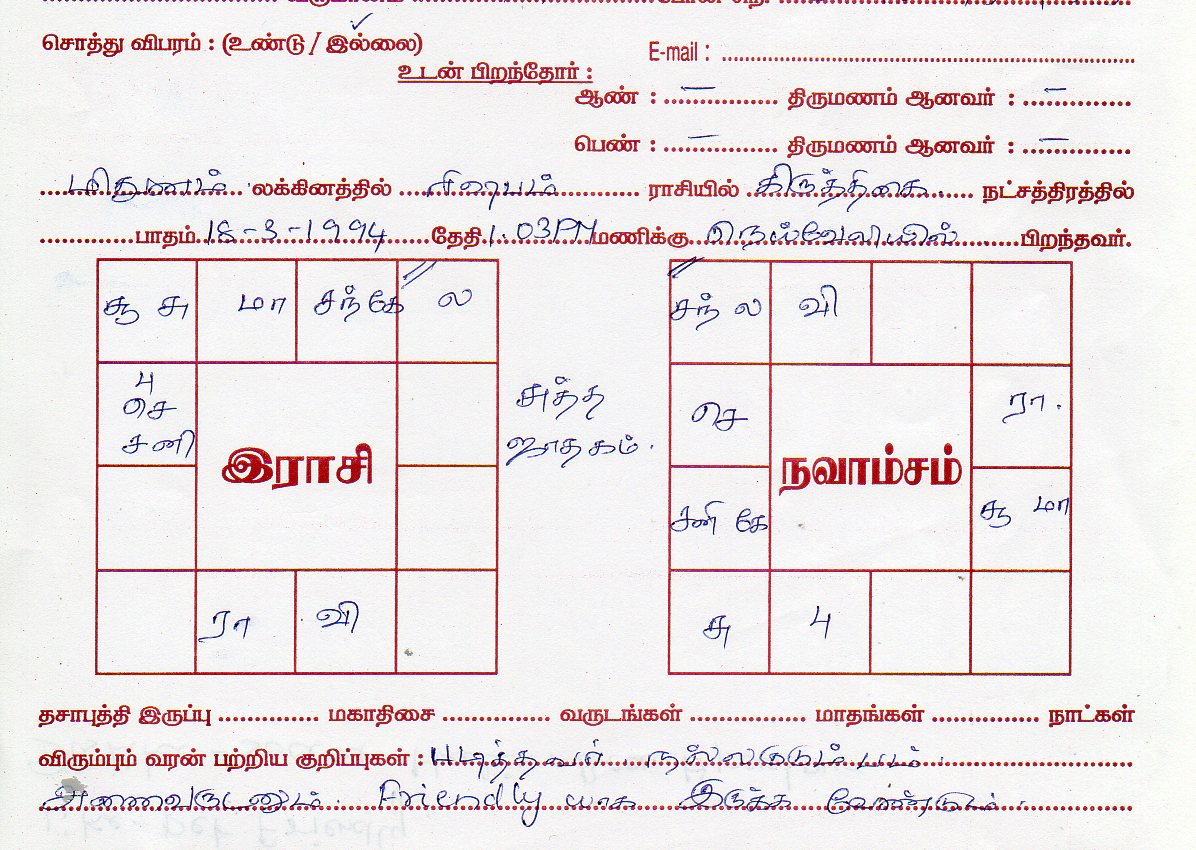 சொத்து விபரம் : (உண்டு / இல்லை)
E-mail : ........................
உடன் பிறந்தோர் :
ஆண் : ..— .............. திருமணம் ஆனவர் : ..— ..........
பெண் : ..— .............. திருமணம் ஆனவர் : ..— ..........
மிதுணம் லக்கினத்தில் ரிஷபம் ராசியில் கிருத்திகை நட்சத்திரத்தில்
............பாதம் 18-3-1994 தேதி 1.03PM மணிக்கு நெய்வேலியில் பிறந்தவர்.
சூ சு மா சந் கே ல
பு
செ
சனி
இராசி
ரா வி
சுத்த
ஜாதகம்.
சந் ல வி
செ ரா.
நவாம்சம்
சனி கே சூ மா
சு பு
தசாபுத்தி இருப்பு .............. மகாதிசை .............. வருடங்கள் .............. மாதங்கள் .............. நாட்கள்
விரும்பும் வரன் பற்றிய குறிப்புகள் : படித்தவர் நல்லகுடும்பம்.
அணைவருடனும். Friendly யாக இருக்க வேண்டும்.